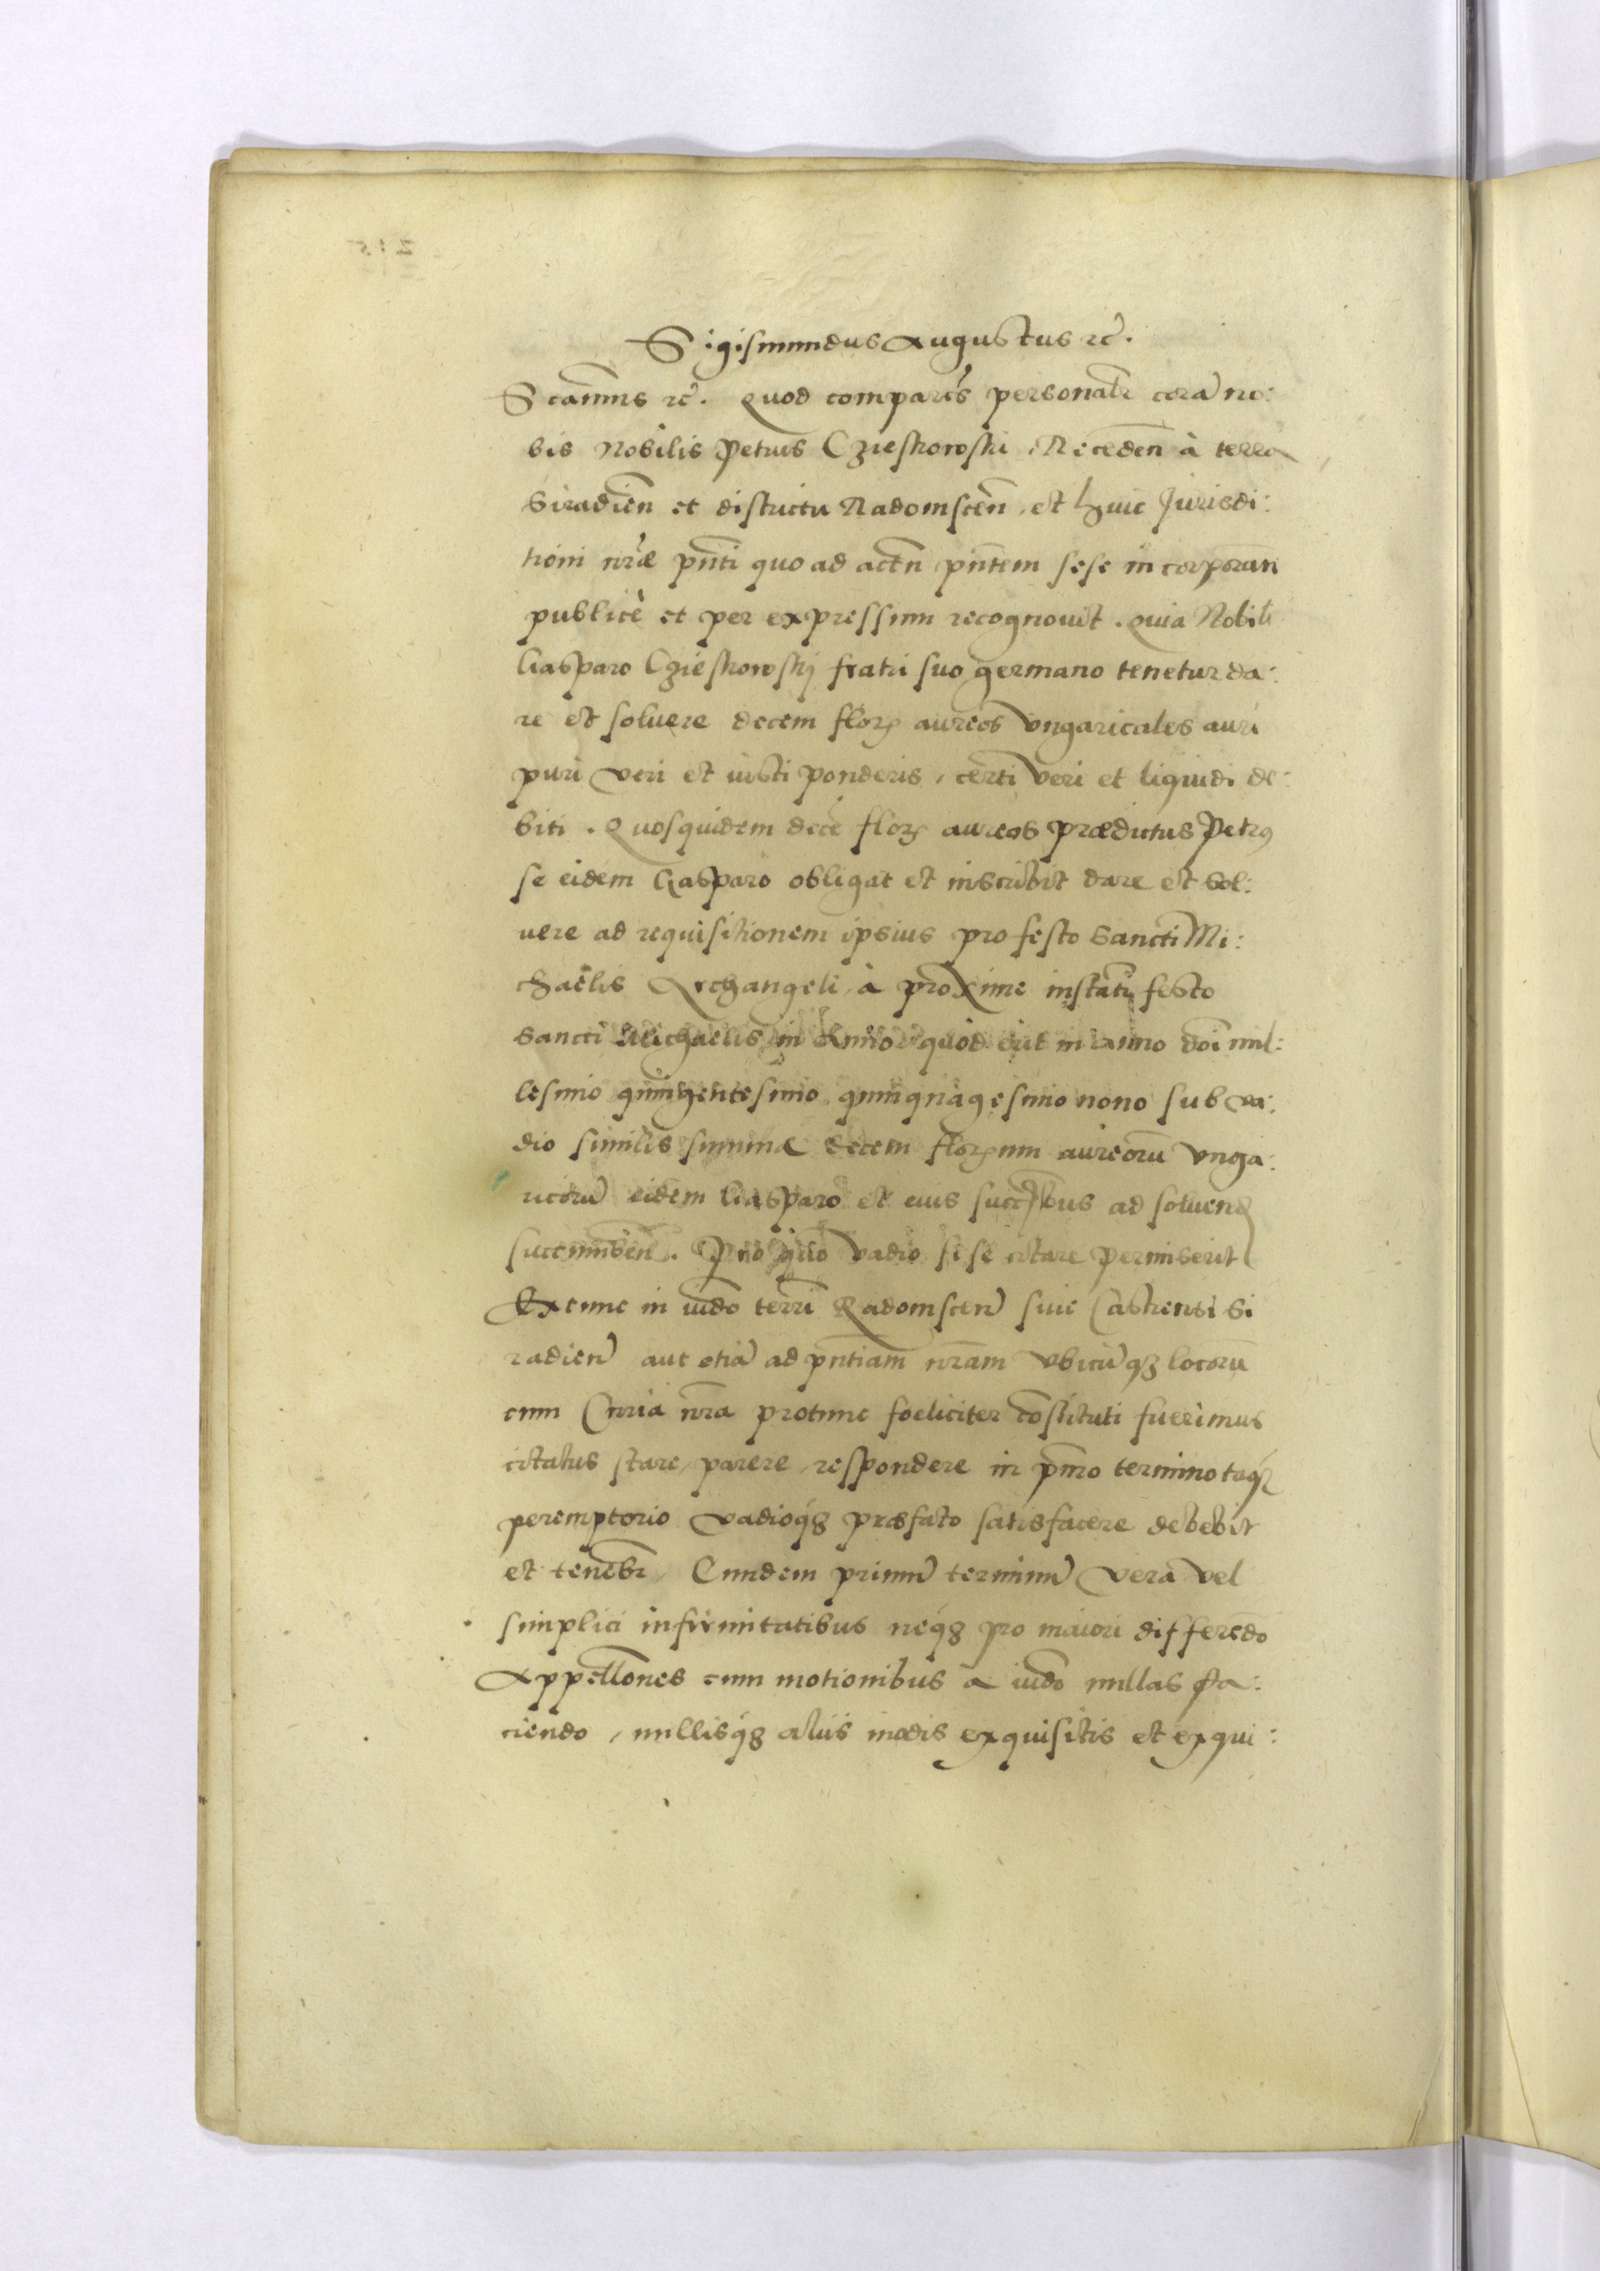 Sigismundus Augustus etc.
Scām̄us etc. Quod comparēs personalr̄ corā no:
bis Nobilis Petrus Czieskowski Recedeñ à terra
Siradieñ et districtu Radomsceñ, et huic Jurisdi:
tioni nr̄æ pn̄ti quo ad actū pn̄tem sese incorporañ
publicè et per expressum recognovit. Quia Nobili
Casparo Czieskowskij fratri suo germano tenetur da:
re et soluere decem florꝭ aureos Vngaricales auri
puri veri et iusti ponderis, certi veri et liquidi de:
biti. Quosquidem decē florꝭ aureos prædictus Petrꝰ
se eidem Casparo obligat et inscribit dare et sol:
uere ad requisitionem ipsius pro festo Sancti Mi:
chaëlis Archangeli à proxime instāti festo
sancti Michaelis in Anno quod erit in anno dn̄i mil:
lesimo quingentesimo quinquagesimo nono sub va:
dio similis summæ decem florꝭnum aureorū Vnga:
ricorū eidem Casparo et eius succꝭbus ad soluend
succumbeñ. Pro quo vadio si se citare permiserit
Extunc in iudō terr̄i Radomsceñ siue Castrensi Si
radieñ aut etiā ad pn̄tiam nr̄am vbicūqꝫ locorū
cum Curia nr̄a protunc foeliciter cōstituti fuerimus
citatus stare, parere, respondere in pm̄o termino taqꝫ
peremptorio vadioqꝫ præfato satisfacere debebit
et tenebr̄. Eundem primū terminū vera vel
simplici infirmitatibus neqꝫ pro maiori differēdo
Appellōnes cum motionibus a iudō nullas fa:
ciendo, nullisqꝫ alijs modis exquisitis et exqui: